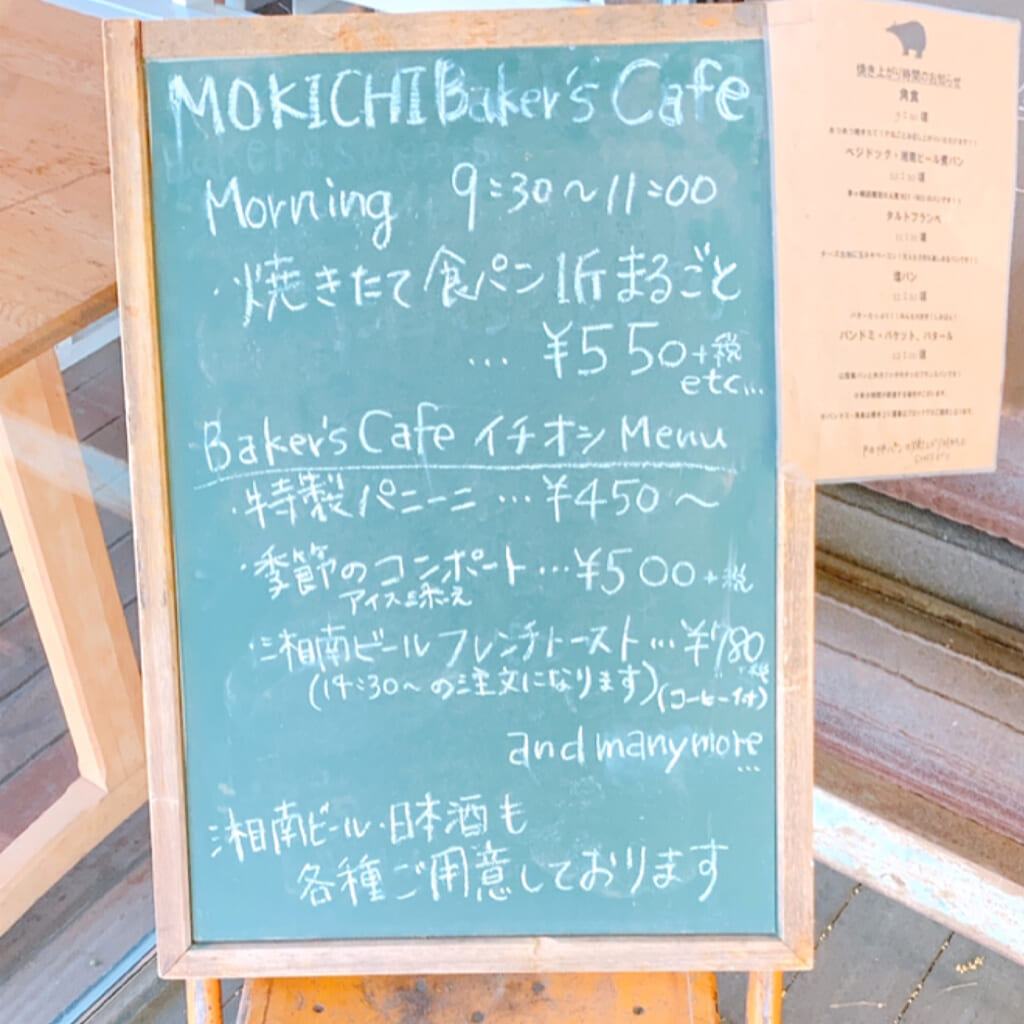 MOKICHI Baker's Cafe
Morning 9:30〜11:00
・焼きたて食パン1斤まるごと
… ¥550+税
etc...
Baker's Cafe イチオシ Menu
・特製パニーニ…¥450〜
・季節のコンポート…¥500+税
アイス添え
・湘南ビールフレンチトースト…¥780
+税
(14:30〜の注文になります)(コーヒー付)
and many more
...
湘南ビール・日本酒も
各種ご用意しております
焼き上がり時間のお知らせ
角食
頃
ベジドック・湘南ビール煮パン
頃
タルトフランベ
頃
塩パン
頃
パンドミ・バケット、バタール
頃